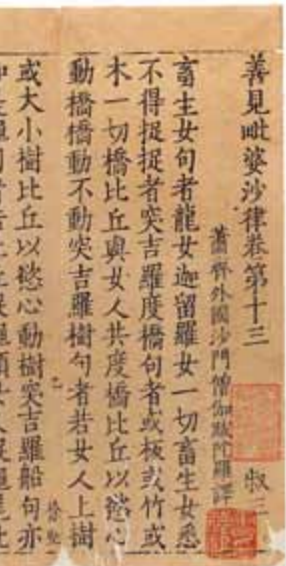 善見毗婆沙律卷第十三
叔三
蕭齊外國沙門僧伽跋陀羅譯
畜生女句者龍女迦留羅女一切畜生女悉
不得捉捉者突吉羅度橋句者或板或竹或
木一切橋比丘與女人共度橋比丘以慾心
動橋橋動不動突吉羅樹句者若女人上樹
或大小樹比丘以慾心動樹突吉羅船句亦